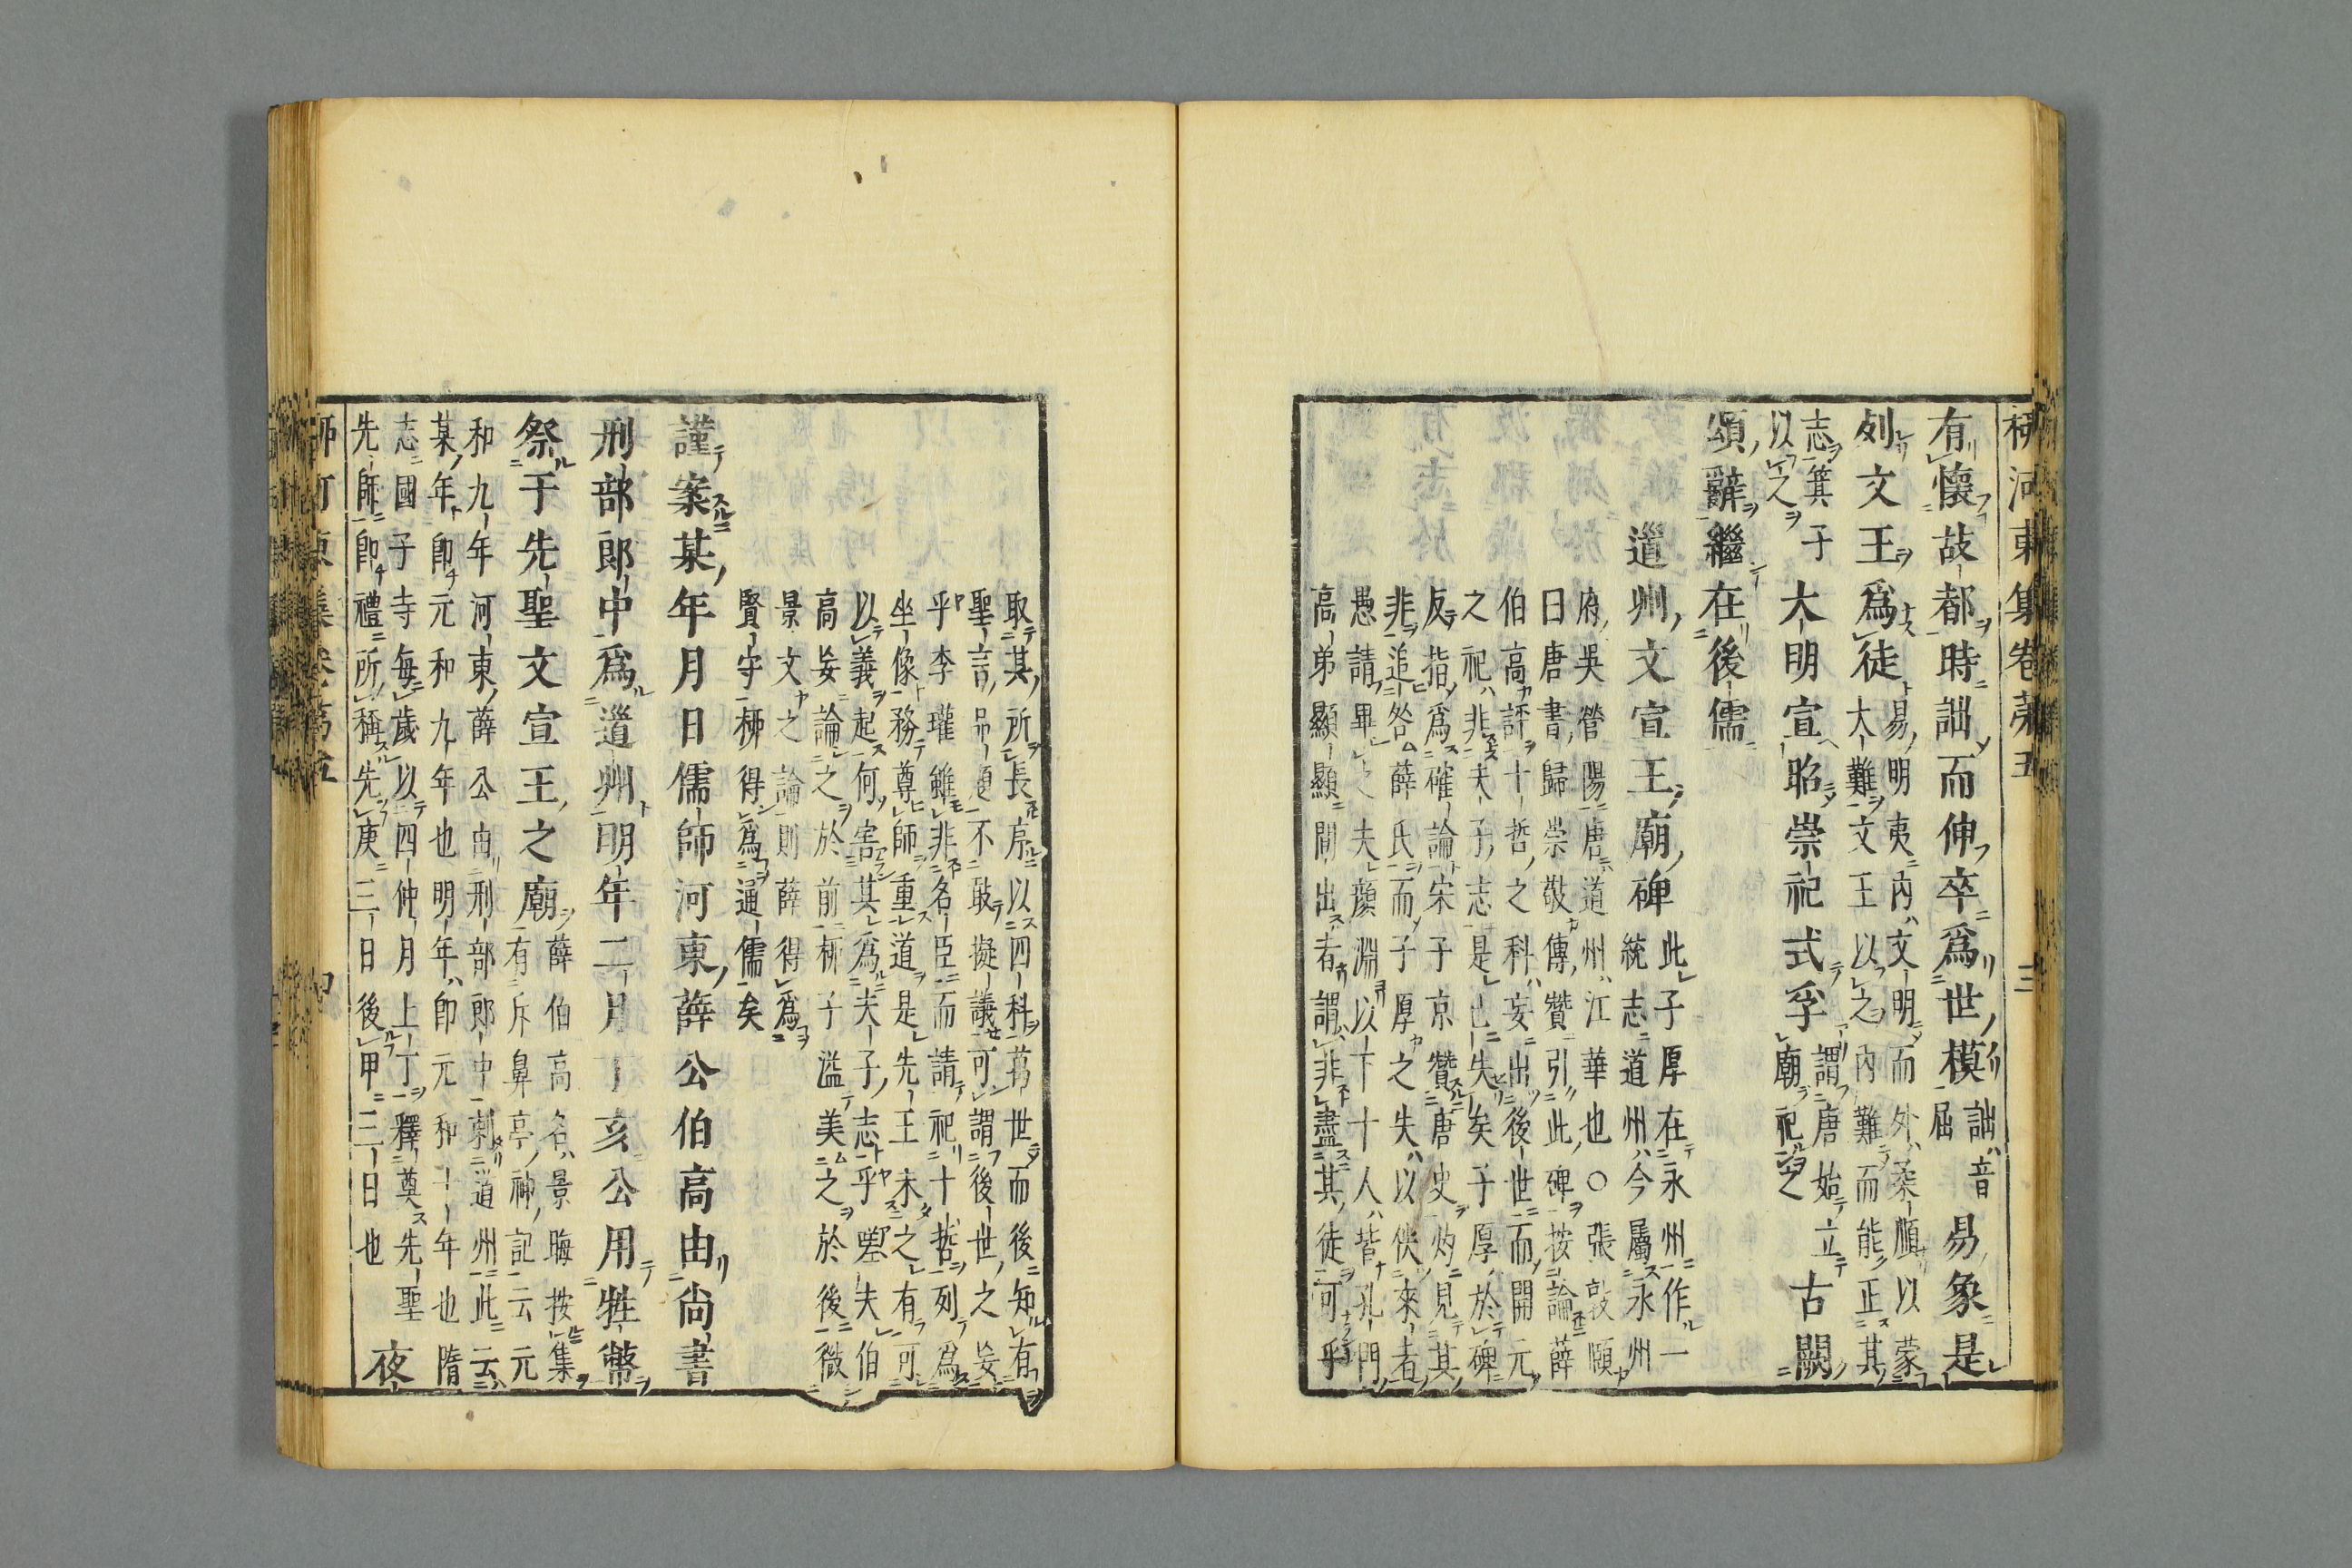 柳河東集卷第五 三
有懷故都時詘而伸卒爲世模
詘音
屈
易象是
列文王爲徒
易明夷內文明而外柔順以蒙
大難文王以之內難而能正其
志箕子
以之
大明宣昭崇祀式孚
謂唐始立
廟祀之
古闕
頌辭繼在後儒
道州文宣王廟碑
此子厚在永州作一
統志道州今屬永州
府吳營陽唐道州江華也○張敦頤
曰唐書歸崇敬傳贊引此碑按論薛
伯高評十哲之科妄出後世而開元
之祀非夫子志是已失矣子厚於碑
反指爲確論宋子京贊唐史灼見其
非追咎薛氏而子厚之失以俟來者
愚請畢之夫顏淵以下十人皆孔門
高弟顯顯間出者謂非盡其徒可乎
取其所長序以四科萬世而後知有
聖言不敢擬議可謂後世之妄
乎李瓘雖非名臣而請祀十哲列爲
坐像務尊師重道是先王未之有可
以義起何害其爲夫子志乎噫夫伯
高妄論之於前柳子溢美之於後微
景文之論則薛得爲
賢守柳得爲通儒矣
謹案某年月日儒師河東薛公伯高由尙書
刑部郎中爲道州明年二月丁亥公用牲幣
祭于先聖文宣王之廟
薛伯高名景晦按集
有斥鼻亭神記云元
和九年河東薛公由刑部郎中刺道州此云
某年卽元和九年也明年卽元和十年也隋
志國子寺每歲以四仲月上丁釋奠先聖
先師卽禮所稱先庚三日後甲三日也
夜
柳河東集卷第五 四